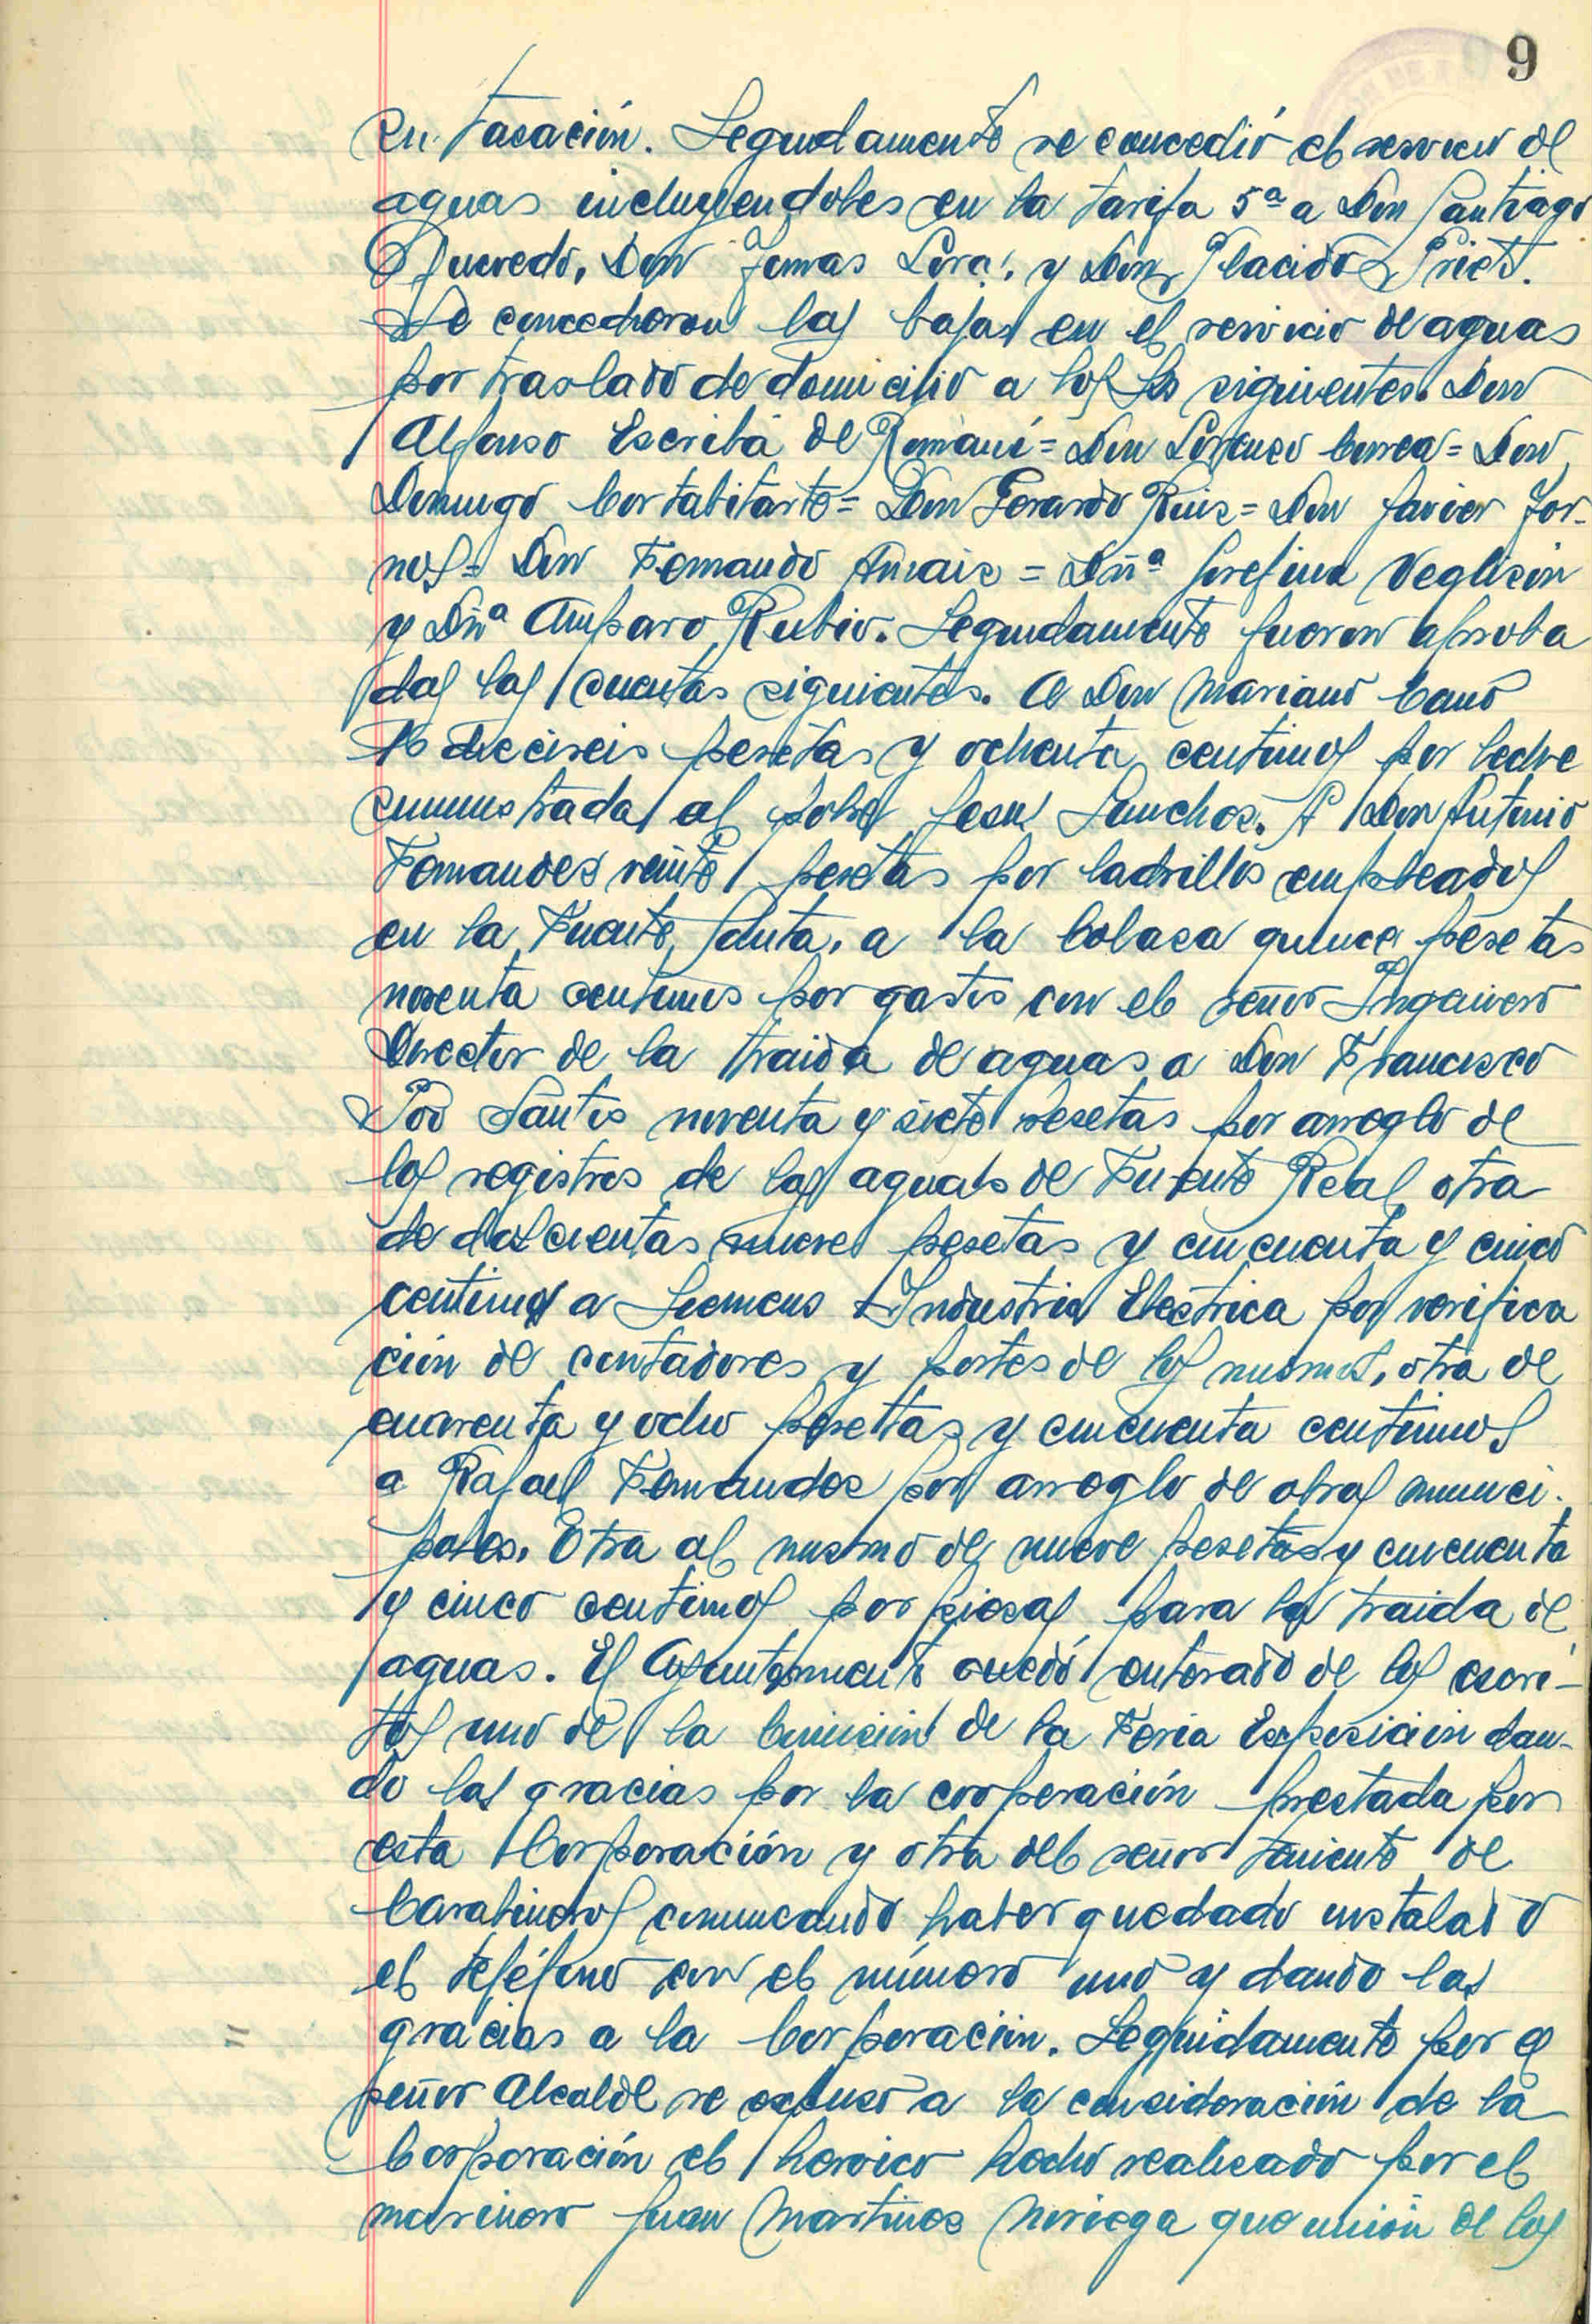 9
en tasación. Seguidamente se concedió el servicio de
aguas incluyendoles en la tarifa 5ª a Don Santiago
Quevedo, Don Tomas Lora, y Don Placido Prieto.
Se concedieron las bajas en el servicio de aguas
por traslado de domicilio a los Srs siguientes. Don
Alfonso Escribá de Romaní = Don Lorenzo Correa = Don
Domingo Cortabitarte = Don Gerardo Ruiz = Don Javier For-
nos = Don Fernando Arnaiz = Dñª Josefina Veglison
y Dñª Amparo Rubio. Seguidamente fueron aproba
das las cuentas siguientes. A Don Mariano Cano
dieciseis pesetas y ochenta centimos por leche
suministrada al pobre Jesus Sanchez. A Don Antonio
Fernandez veinte pesetas por ladrillos empleados
en la Fuente Santa, a la Colasa quince pesetas
noventa centimos por gastos con el señor Ingeniero
Director de la traida de aguas a Don Francisco
Poo Santis noventa y siete pesetas por arreglo de
los registros de las aguas de Fuente Real otra
de doscientas nueve pesetas y cincuenta y cinco
centimos a Siemens Industria Electrica por verifica
ción de contadores y portes de los mismos, otra de
cuarenta y ocho pesetas y cincuenta centimos
a Rafael Fernandez por arreglo de obras munici-
pales. Otra al mismo de nueve pesetas y cincuenta
y cinco centimos por piezas para la traida de
aguas. El Ayuntamiento quedó enterado de los escri-
tos uno de la Comision de la Feria Exposicion dan-
do las gracias por la cooperación prestada por
esta Corporación y otra del señor teniente de
Carabineros comunicando haber quedado instalado
el teléfono con el número uno y dando las
gracias a la Corporacion. Seguidamente por el
señor Alcalde se expuso a la consideración de la
Corporación el heroico hecho realizado por el
marinero Juan Martinez Noriega que unión de los